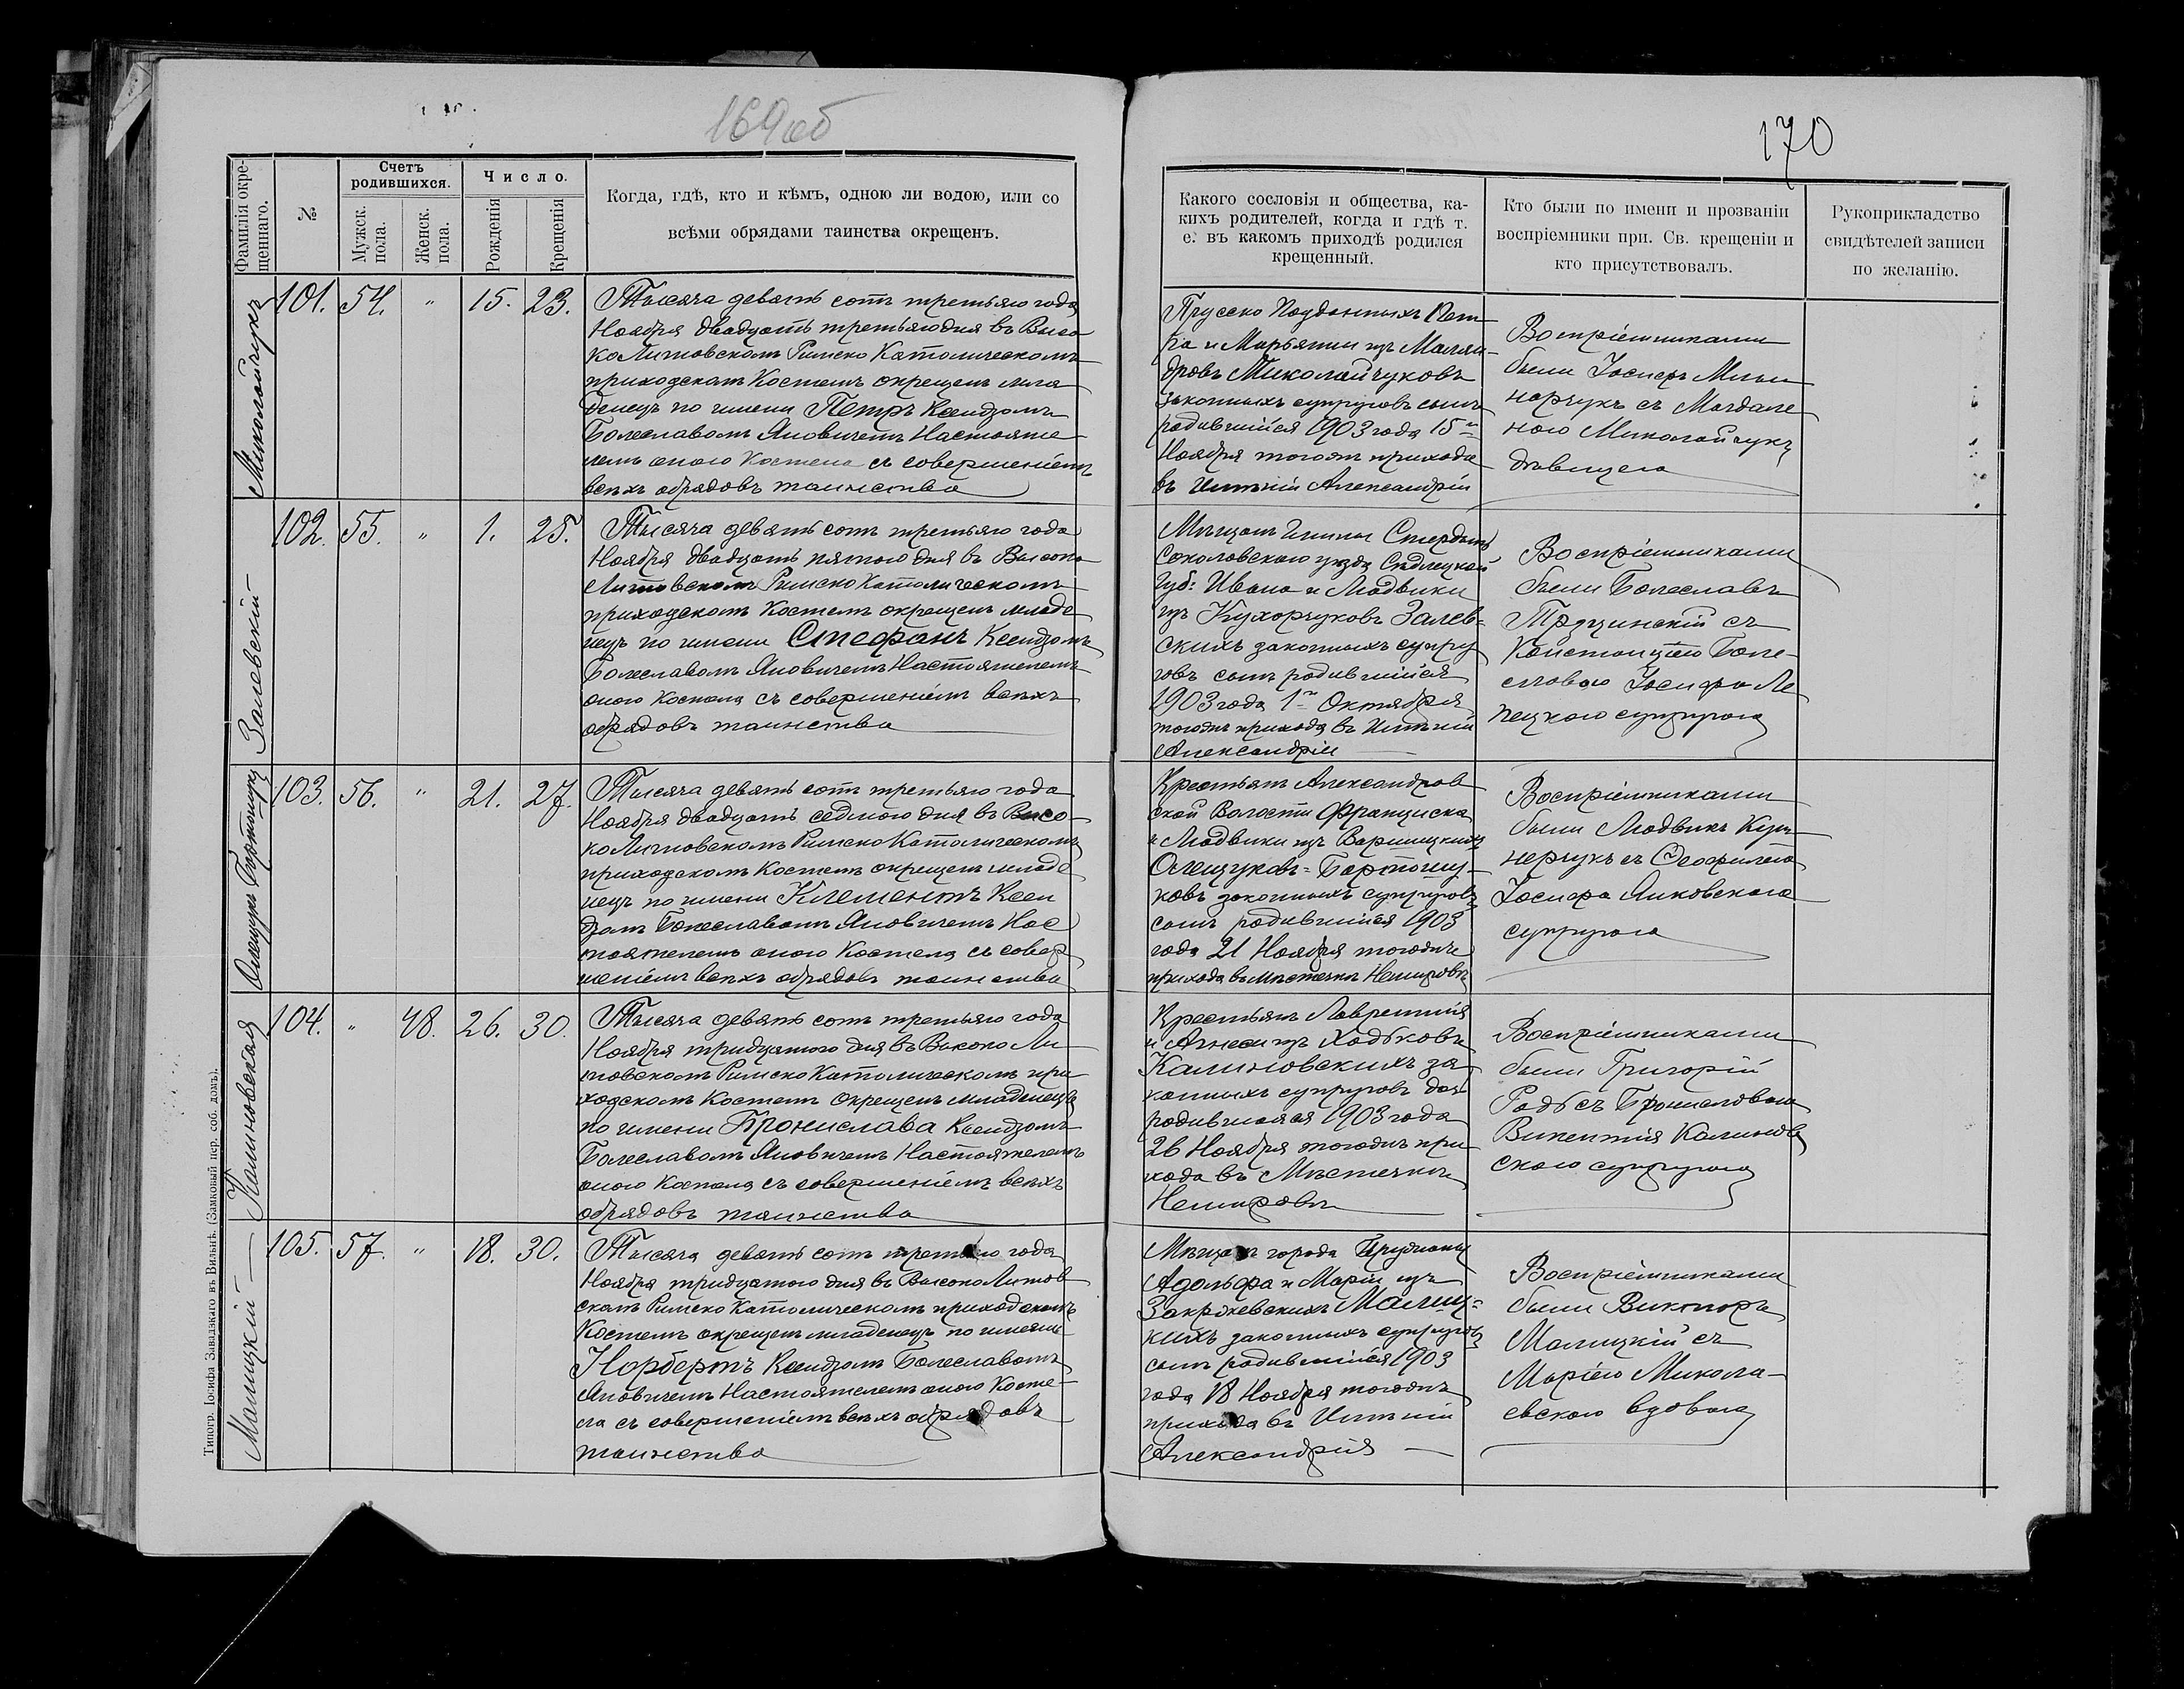 169об
170
Фамилія окре-
щеннаго.
№
Счетъ
родившихся.
Мужск.
пола.
Женск.
пола.
Число.
Рожденія
Крещенія
Когда, гдѣ, кто и кѣмъ, одною ли водою, или со
всѣми обрядами таинства окрещенъ.
Какого сословія и общества, ка-
кихъ родителей, когда и гдѣ т.
е. въ какомъ приходѣ родился
крещенный.
Кто были по имени и прозваніи
воспріемники при. Св. крещеніи и
кто присутствовалъ.
Рукоприкладство
свидѣтелей записи
по желанію.
Миколайчукъ
101. 54. " 15. 23.
Тысяча девять сотъ третьяго года
Ноября двадцать третьяго дня въ Высо
коЛитовскомъ Римско Католическомъ
приходскомъ Костелѣ окрещенъ мла
денецъ по имени Петръ Ксендзомъ
Болеславомъ Яновичемъ Настояте
лемъ оного Костела съ совершеніемъ
всѣхъ обрядовъ таинства
Прусско Подданныхъ Пет
ра и Марьянны изъ
дровъ Миколайчуковъ
законныхъ супруговъ сынъ
родившійся 1903 года 15го
Ноября тогожъ прихода
въ Имѣніи Александріи
Воспріемниками
были Іосифъ
нарчукъ съ Магдале
ною Миколайчукъ
дѣвицею
Залевскій
102. 55. " 1. 25.
Тысяча девять сотъ третьяго года
Ноября двадцать пятого дня въ Высоко
Литовскомъ Римско Католическомъ
приходскомъ Костелѣ окрещенъ младе
нецъ по имени Стефанъ Ксендзомъ
Болеславомъ Яновичемъ Настоятелемъ
оного Костела съ совершеніемъ всѣхъ
обрядовъ таинства
Мѣщанъ Гмины Стердынь
Соколовскаго уѣзда Сѣдлецкой
Губ: Ивана и Людвики
изъ Кухарчуковъ Залев-
скихъ законныхъ супру
говъ сынъ родившійся
1903 года 1го Октября
тогожъ прихода въ Имѣніи
Александріи
Воспріемниками
были Болеславъ
съ
Констанціею Боле-
славою Іосифа Ле
пецкого супругою
Олещукъ Бартошукъ
103. 56. " 21. 27.
Тысяча девять сотъ третьяго года
Ноября двадцать седмого дня въ Высо-
коЛитовскомъ Римско Католическомъ
приходскомъ Костелѣ окрещенъ младе
нецъ по имени Климентъ Ксен
дзомъ Болеславомъ Яновичемъ Нас
тоятелемъ оного Костела съ совер
шеніемъ всѣхъ обрядовъ таинства
Крестьянъ Александров
ской Волости Франциска
и Людвики изъ
Олещуковъ-Бартошу-
ковъ законныхъ супруговъ
сынъ родившійся 1903
года 21 Ноября тогожъ
прихода въ мѣстечкѣ Немировѣ
Воспріемниками
были Людвикъ Куш
нерчукъ съ Теофилею
Іосифа Янковскаго
супругою
Калиновская
104. " 48. 26. 30.
Тысяча девять сотъ третьяго года
Ноября тридцатого дня въ Высоко Ли
товскомъ Римско Католическомъ при
ходскомъ Костелѣ окрещенъ младенецъ
по имени Бронислава Ксендзомъ
Болеславомъ Яновичемъ Настоятелемъ
оного Костела съ совершеніемъ всѣхъ
обрядовъ таинства
Крестьянъ Лаврентія
и Агнесы изъ Ходьковъ
Калиновскихъ за
конныхъ супруговъ дочь
родившаяся 1903 года
26 Ноября тогожъ при
хода въ Мѣстечкѣ
Немировѣ
Воспріемниками
были Григорій
съ Брониславою
Викентія Калинов
скаго супругою
Малицкій
105. 57. " 18. 30.
Тысяча девять сотъ третьяго года
Ноября тридцатого дня въ ВысокоЛитов
скомъ Римско Католическомъ приходскомъ
Костелѣ окрещенъ младенецъ по имени
Норбертъ Ксендзомъ Болеславомъ
Яновичемъ Настоятелемъ оного Косте-
ла съ совершеніемъ всѣхъ обрядовъ
таинства
Мѣщанъ города Пружаны
Адольфа и Маріи изъ
Закржевскихъ Малиц-
кихъ законныхъ супруговъ
сынъ родившійся 1903
года 18 Ноября тогожъ
прихода въ Имѣніи
Александрія
Воспріемниками
были Викторъ
Малицкій съ
Маріею Микола-
евскою вдовою
Типогр. Іосифа Завадзкаго въ Вильнѣ. (Замковый пер. соб. домъ).